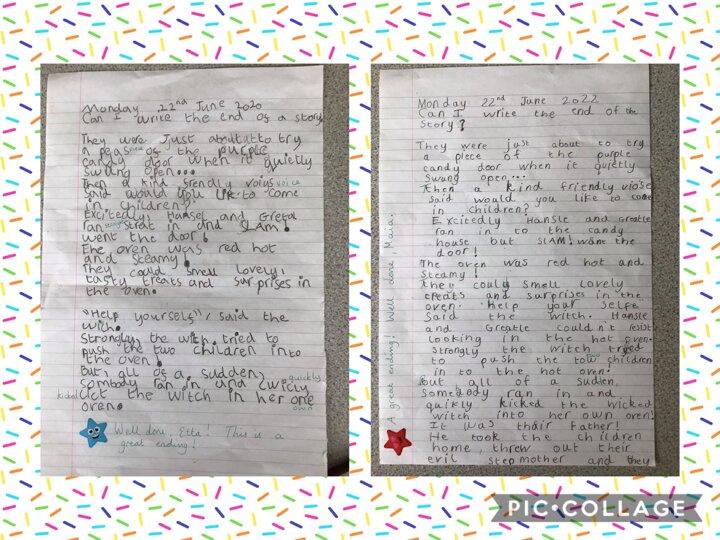 Monday 22nd June 2020
Can I write the end of a story
They were just about at to try
a peas piece of the purple
candy door when it quietly
swung open...
Then a kind frendly voiys voice
said would you like to come
in children?
Excitedly, Hansel and Gretal
ran strat in and SLAM!
went the door!
The oven was red hot
and steamy!
They could smell lovely,
tasty treats and surprises in
the oven.
"Help yourself", said the
wich.
Strongly the with tried to
push the two children into
the oven!
But, all of a sudden,
sombody ran in and cwicly quickly
kicked cict the witch in her one
oven. own
Well done, Etta! This is a
great ending!
Monday 22nd June 2022
Can I write the end of the
story?
They were just about to try
a piece of the purple
candy door when it quietly
swung open...
then a kind friendly voise
said would you like to come
in children?
Excitedly Hansle and Greatle
ran in to the candy
house but SLAM! want the
door!
The oven was red hot and
steamy!
they could smell lovely
treats and surprises in the
oven. help your selfe
said the witch. Hansle
and Greatle couldn't resist
looking in the hot oven.
Strongly the witch tryed
to push the tow children
in to the hot oven.
But all of a sudden,
somebody ran in and
quikly kicked the wicked
witch into her own oven!
It was thair Father!
He took the children
home, threw out their
evil step mother and they
great ending! Well done, Maia.
PIC•COLLAGE